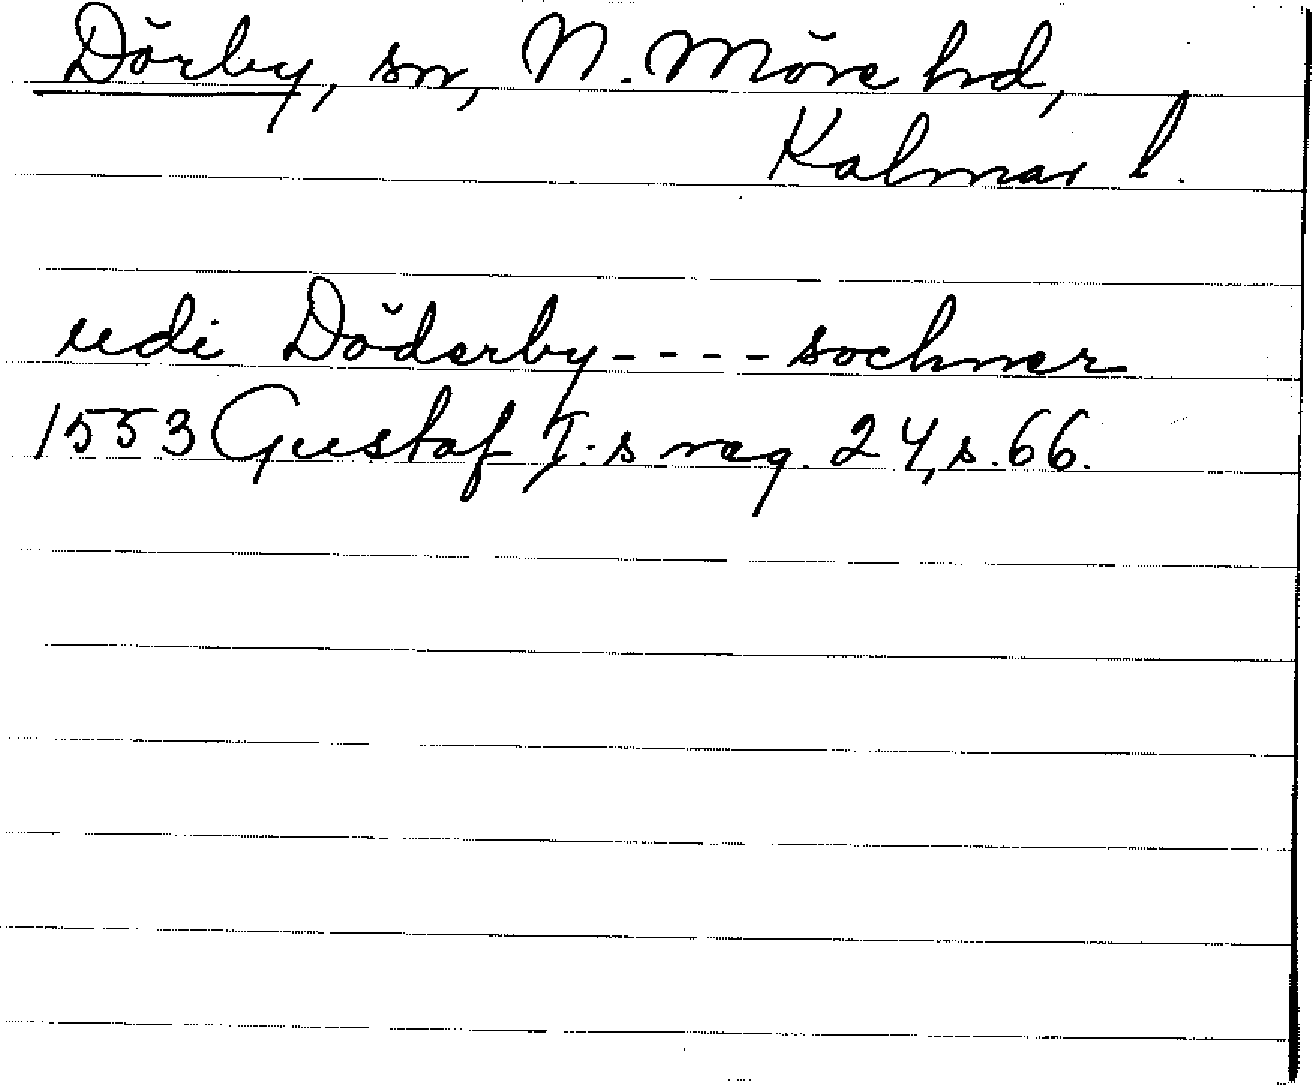 Dörby, sn, N. Möre hd,
Kalmar l.
udi Döderby - - - - sochner
1553 Gustaf I:s reg. 24, s. 66.